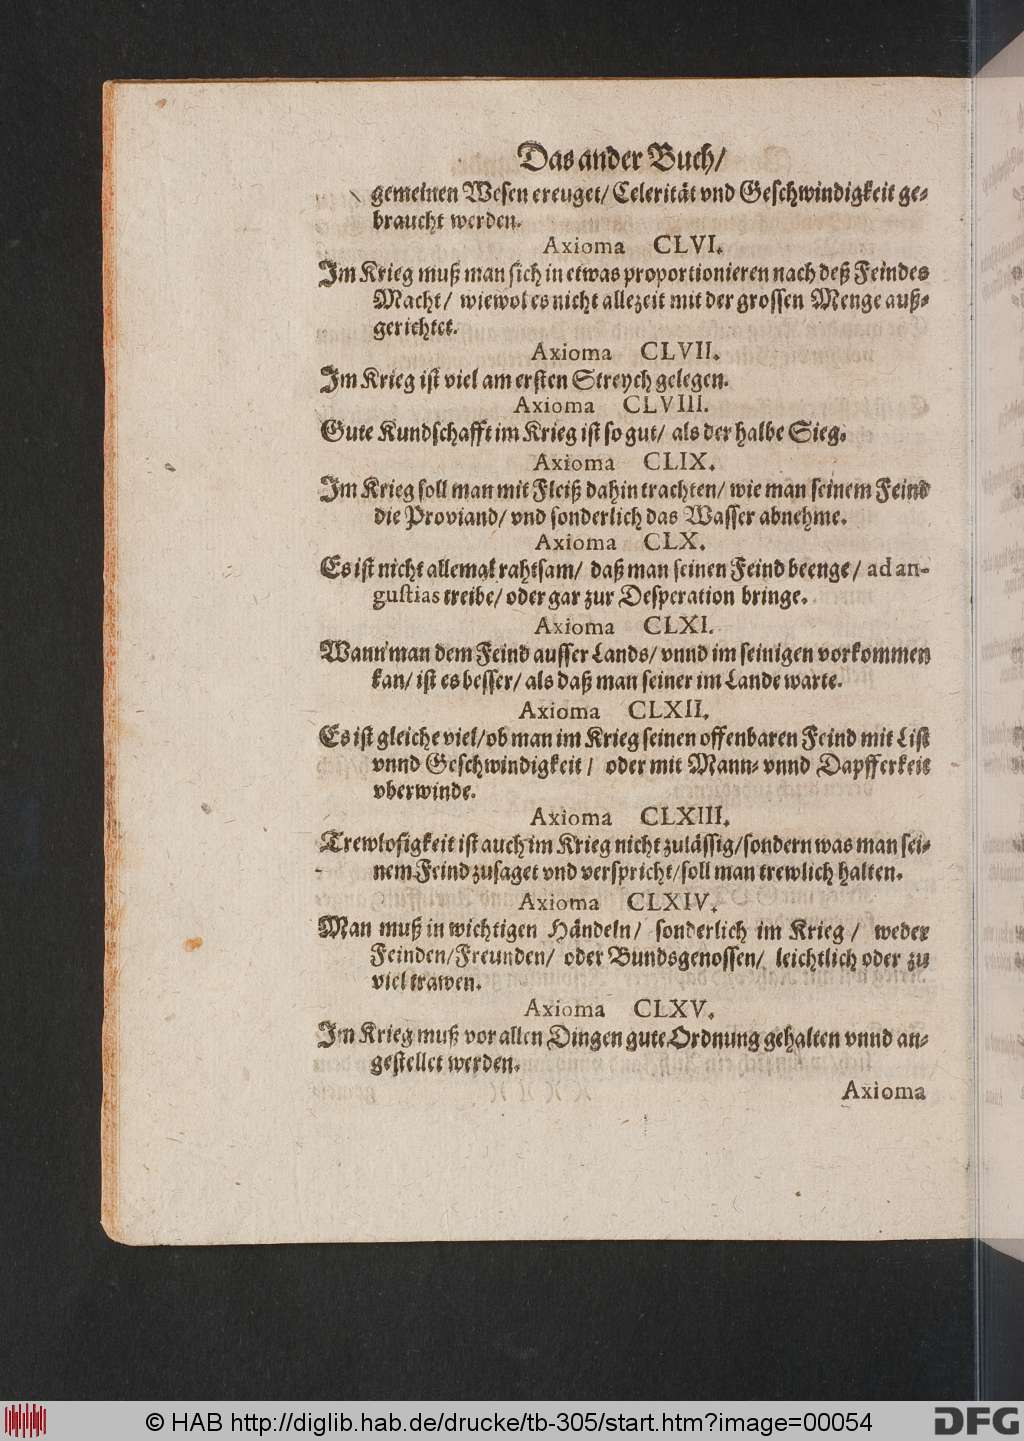 Das ander Buch/
gemeinen Wesen ereuget/ Celerität vnd Geschwindigkeit ge-
braucht werden.
Axioma CLVI.
Im Krieg muß man sich in etwas proportionieren nach deß Feindes
Macht/ wiewol es nicht allezeit mit der grossen Menge auß-
gerichtet.
Axioma CLVII.
Im Krieg ist viel am ersten Streych gelegen.
Axioma CLVIII.
Gute Kundschafft im Krieg ist so gut/ als der halbe Sieg.
Axioma CLIX.
Im Krieg soll man mit Fleiß dahin trachten/ wie man seinem Feind
die Proviand/ vnd sonderlich das Wasser abnehme.
Axioma CLX.
Es ist nicht allemal rahtsam/ daß man seinen Feind beenge/ ad an-
gustias treibe/ oder gar zur Desperation bringe.
Axioma CLXI.
Wann man dem Feind ausser Lands/ vnnd im seinigen vorkommen
kan/ ist es besser/ als daß man seiner im Lande warte.
Axioma CLXII.
Es ist gleiche viel/ ob man im Krieg seinen offenbaren Feind mit List
vnnd Geschwindigkeit/ oder mit Mann- vnnd Dapfferkeit
vberwinde.
Axioma CLXIII.
Trewlosigkeit ist auch im Krieg nicht zulässig/ sondern was man sei-
nem Feind zusaget vnd verspricht/ soll man trewlich halten.
Axioma CLXIV.
Man muß in wichtigen Händeln/ sonderlich im Krieg/ weder
Feinden/ Freunden/ oder Bundsgenossen/ leichtlich oder zu
viel trawen.
Axioma CLXV.
Im Krieg muß vor allen Dingen gute Ordnung gehalten vnnd an-
gestellet werden.
Axioma
© HAB http://diglib.hab.de/drucke/tb-305/start.htm?image=00054
DFG